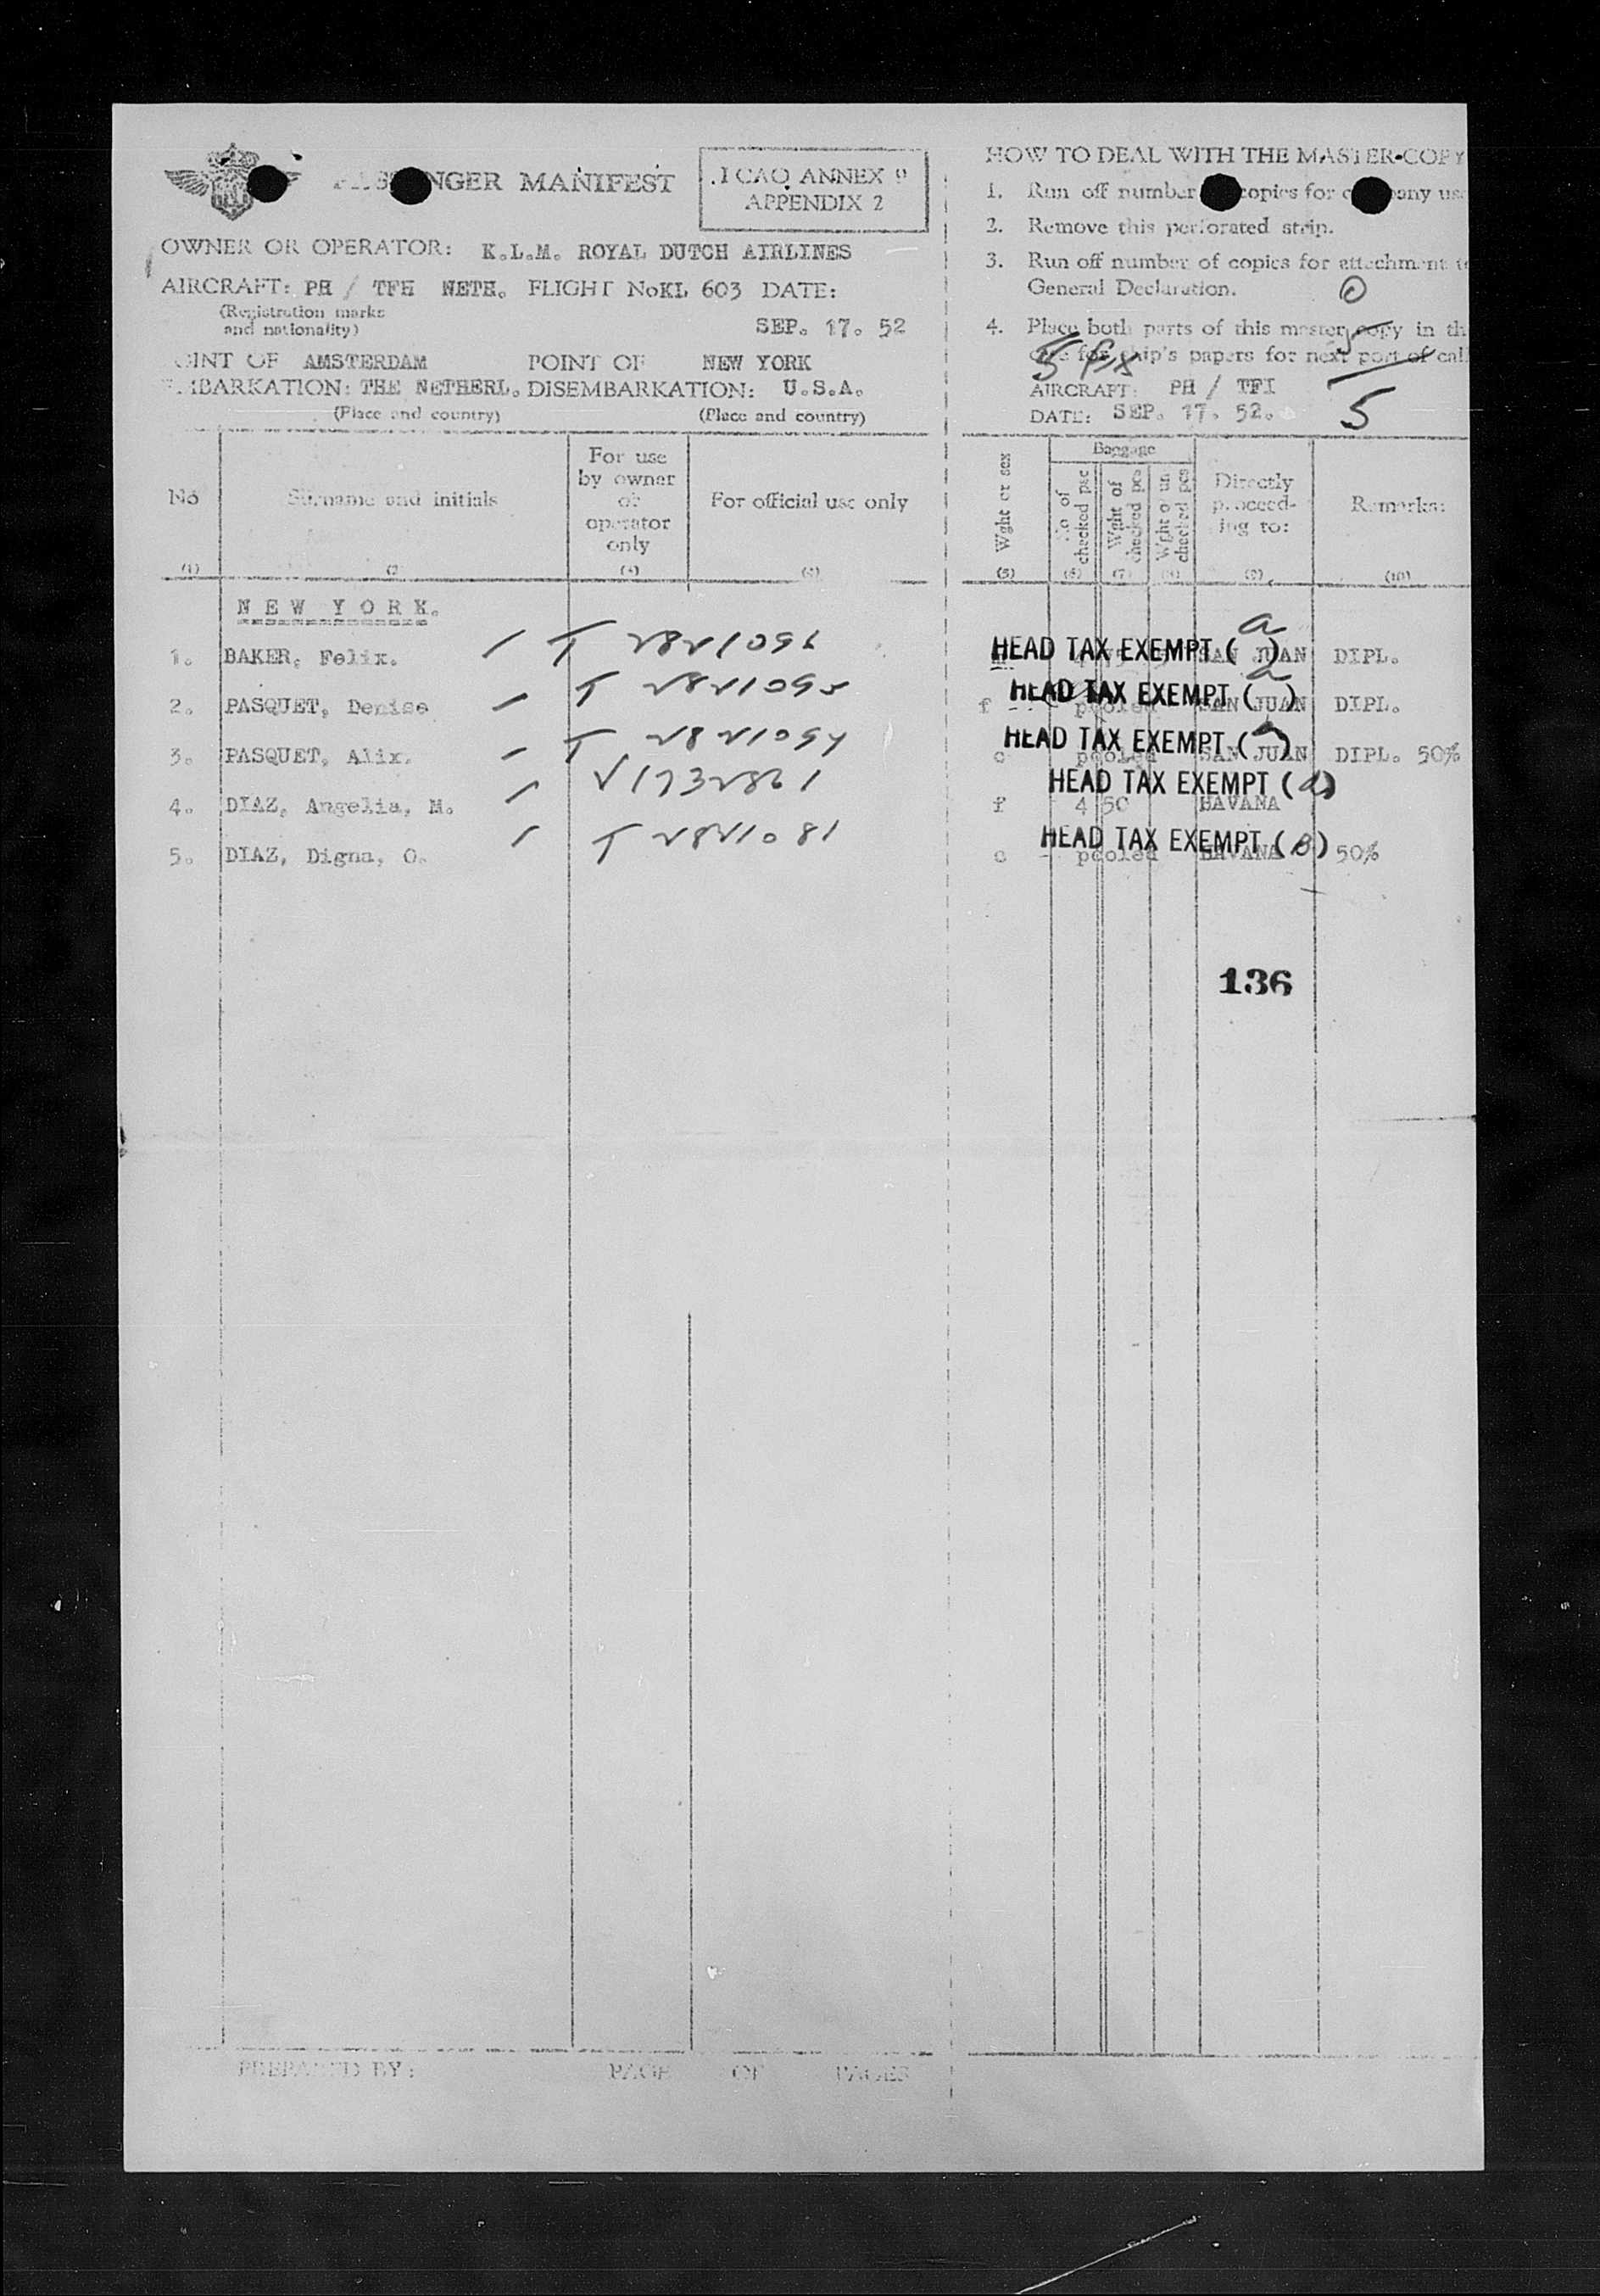 PASSENGER MANIFEST
I CAO ANNEX 9
APPENDIX 2
OWNER OR OPERATOR: K.L.M. ROYAL DUTCH AIRLINES
AIRCRAFT: PH / TFH NETH. FLIGHT No KL 603 DATE:
(Registration marks
and nationality)
SEP. 17. 52
OINT OF AMSTERDAM POINT OF NEW YORK
MBARKATION: THE NETHERL. DISEMBARKATION: U.S.A.
(Place and country) (Place and country)
HOW TO DEAL WITH THE MASTER-COPY
1. Run off number copies for company us
2. Remove this perforated strip.
3. Run off number of copies for attachment t
General Declaration.
4. Place both parts of this master copy in th
for ship's papers for next port of call
5
AIRCRAFT: PH / TFI
DATE: SEP. 17. 52.
5
No Surname and initials For use by owner or operator only For official use only
(1) (2) (3) (4)
Wght or sex Baggage No of checked pse Wght of checked pcs Wght of un checked pcs Directly proceed-ing to: Remarks:
(5) (6) (7) (8) (9) (10)
N E W Y O R K.
1. BAKER, Felix. T 2821096 HEAD TAX EXEMPT (a) SAN JUAN DIPL.
2. PASQUET, Denise T 2821095 f pooled HEAD TAX EXEMPT (a) SAN JUAN DIPL.
3. PASQUET, Alix. T 2821094 c pooled HEAD TAX EXEMPT (a) SAN JUAN DIPL. 50%
4. DIAZ, Angelia, M. V1732861 f 4 50 HEAD TAX EXEMPT (a) HAVANA
5. DIAZ, Digna, O. T 2821081 c - pooled HEAD TAX EXEMPT (B) HAVANA 50%
136
PREPARED BY: PAGE OF PAGES